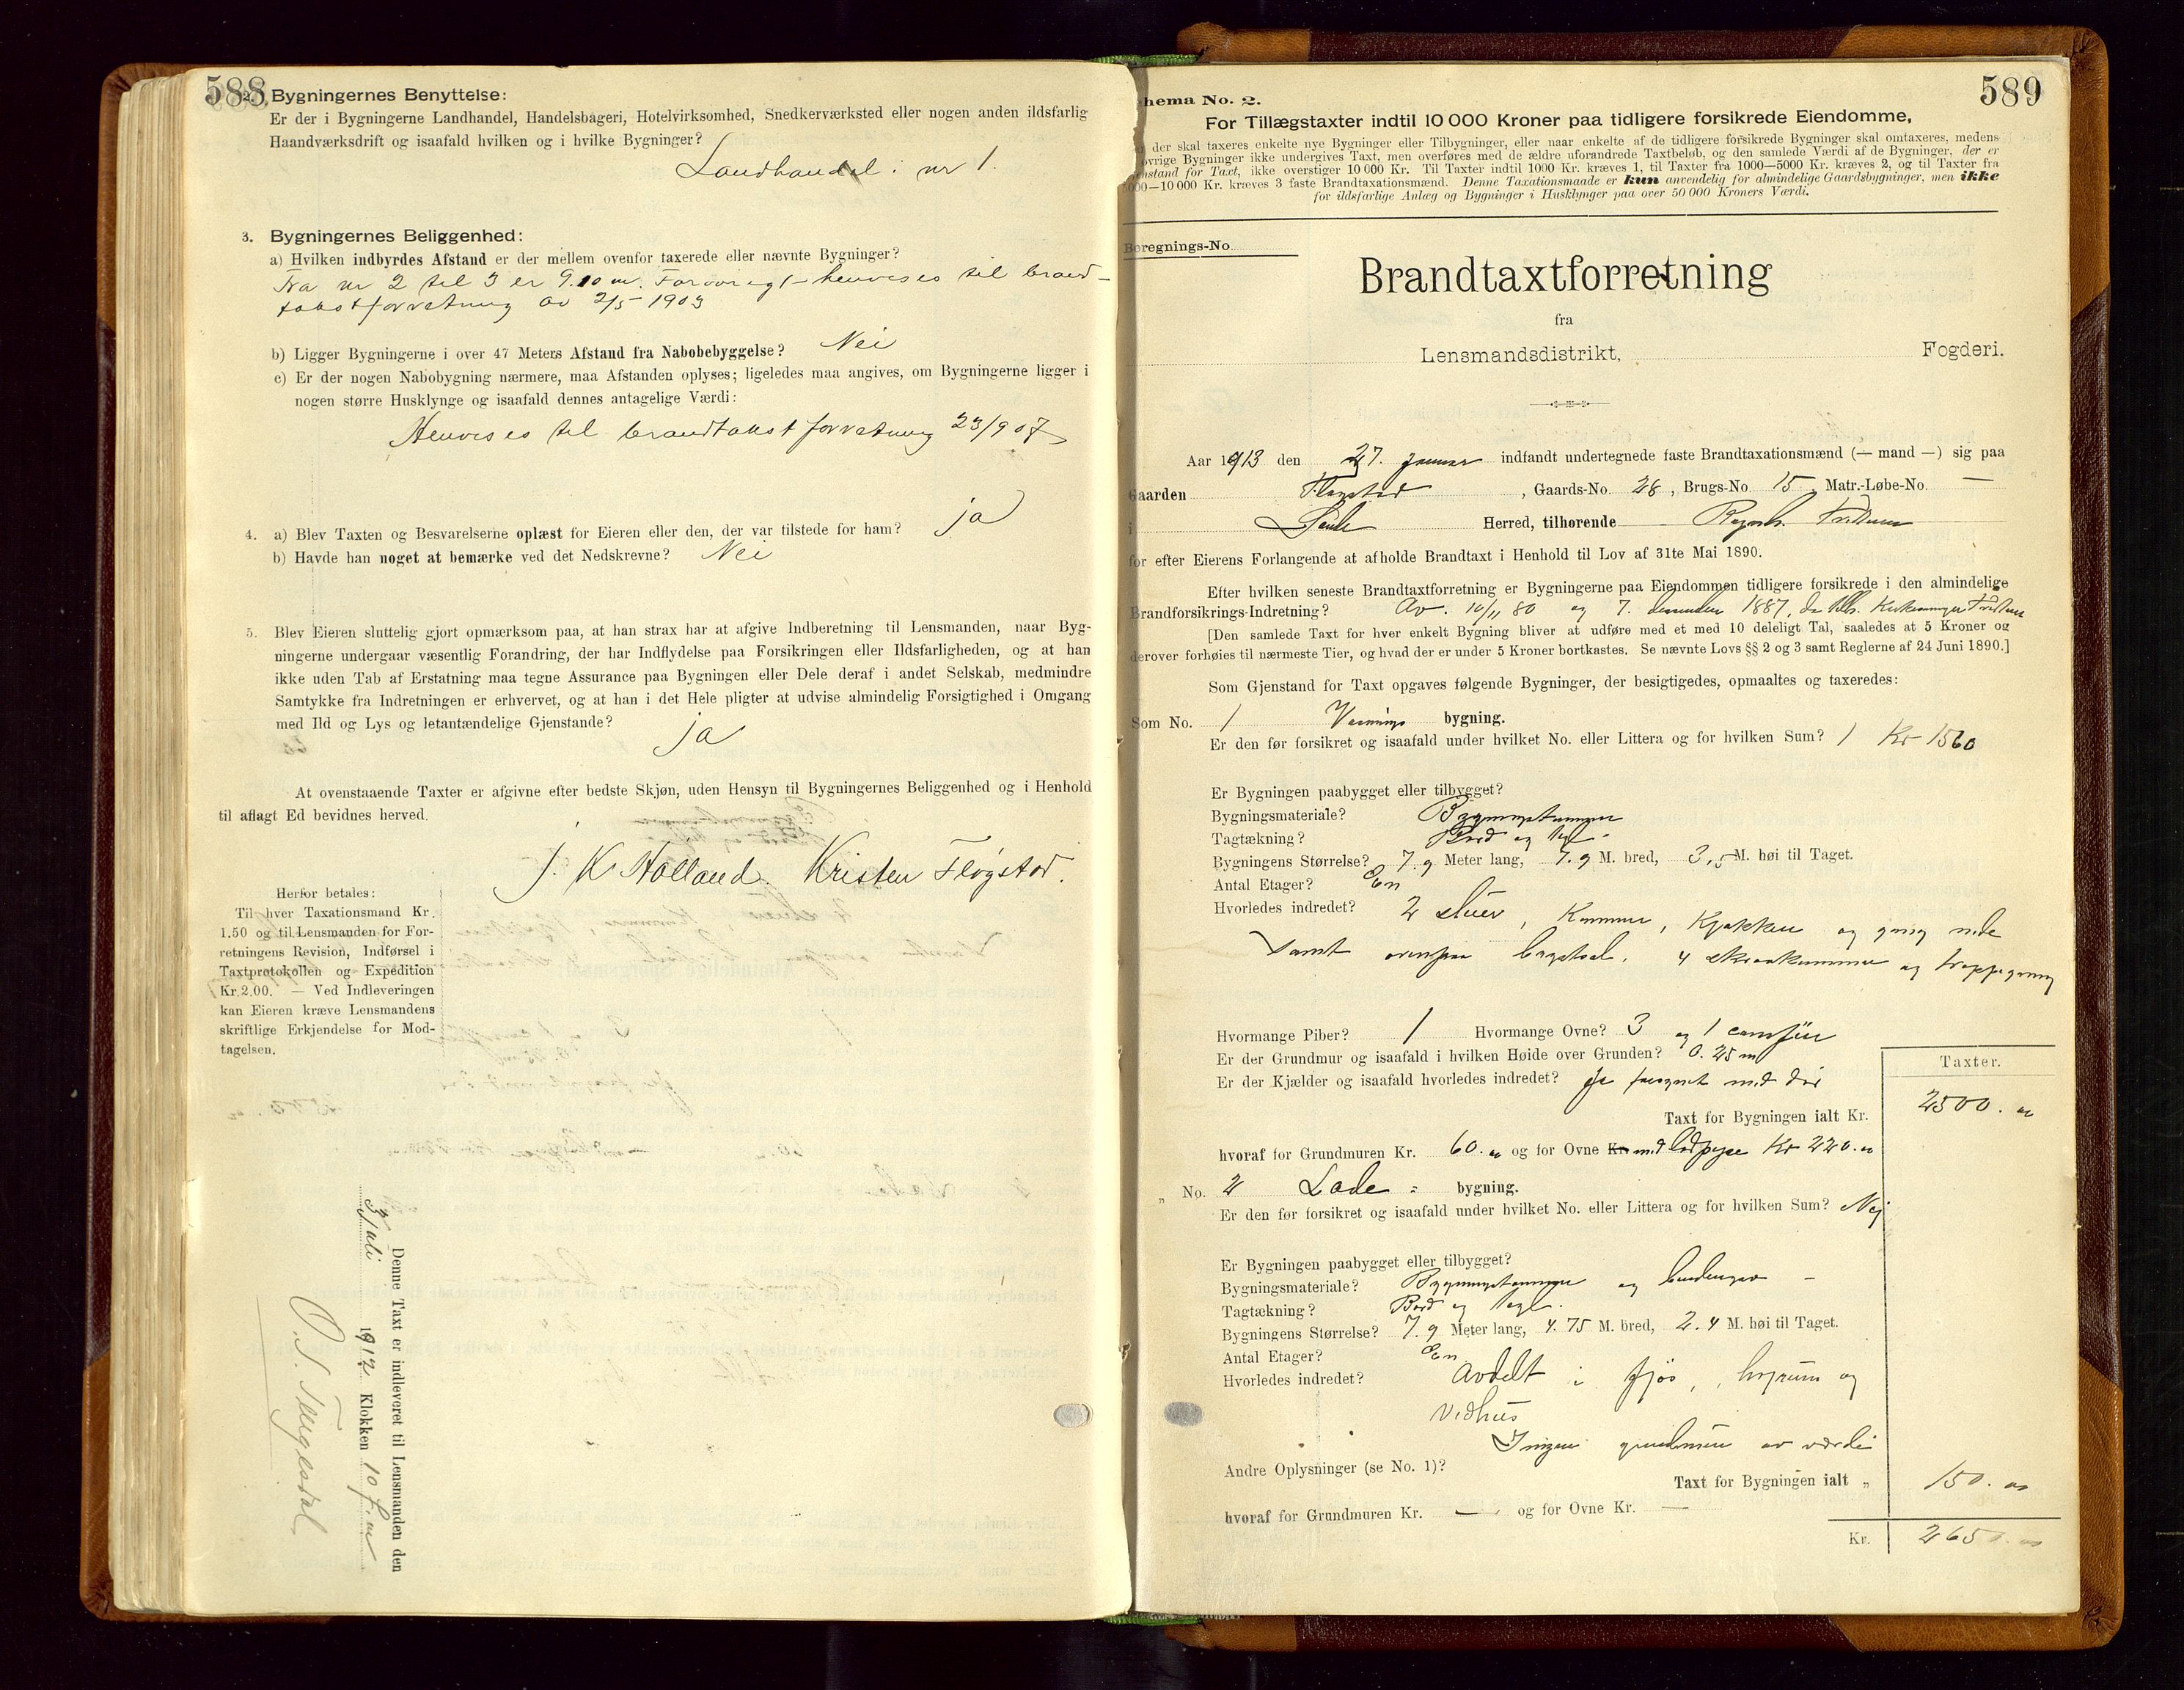 588
2. Bygningernes Benyttelse:
Er der i Bygningerne Landhandel, Handelsbageri, Hotelvirksomhed, Snedkerværksted eller nogen anden ildsfarlig
Haandværksdrift og isaafald hvilken og i hvilke Bygninger?
Landhandel i nr 1.
3. Bygningernes Beliggenhed:
a) Hvilken indbyrdes Afstand er der mellem ovenfor taxerede eller nævnte Bygninger?
Fra nr 2 til 3 er 9.10 m. Forøvrigt henvises til brand-
takstforretning av 2/5 1903
b) Ligger Bygningerne i over 47 Meters Afstand fra Nabobebyggelse? Nei
c) Er der nogen Nabobygning nærmere, maa Afstanden oplyses; ligeledes maa angives, om Bygningerne ligger i
nogen større Husklynge og isaafald dennes antagelige Værdi:
Henvises til brandtakstforretning 23/9 07
4. a) Blev Taxten og Besvarelserne oplæst for Eieren eller den, der var tilstede for ham? ja
b) Havde han noget at bemærke ved det Nedskrevne? Nei
5. Blev Eieren sluttelig gjort opmærksom paa, at han strax har at afgive Indberetning til Lensmanden, naar Byg-
ningerne undergaar væsentlig Forandring, der har Indflydelse paa Forsikringen eller Ildsfarligheden, og at han
ikke uden Tab af Erstatning maa tegne Assurance paa Bygningen eller Dele deraf i andet Selskab, medmindre
Samtykke fra Indretningen er erhvervet, og at han i det Hele pligter at udvise almindelig Forsigtighed i Omgang
med Ild og Lys og letantændelige Gjenstande?
ja
At ovenstaaende Taxter er afgivne efter bedste Skjøn, uden Hensyn til Bygningernes Beliggenhed og i Henhold
til aflagt Ed bevidnes herved.
J. K Hølland. Kristen Fløgstad.
Herfor betales:
Til hver Taxationsmand Kr.
1,50 og til Lensmanden for For-
retningens Revision, Indførsel i
Taxtprotokollen og Expedition
Kr. 2,00. — Ved Indleveringen
kan Eieren kræve Lensmandens
skriftlige Erkjendelse for Mod-
tagelsen.
Denne Taxt er indleveret til Lensmanden den
3 juli 1912 Klokken 10 f.m
589
hema No. 2.
For Tillægstaxter indtil 10 000 Kroner paa tidligere forsikrede Eiendomme,
der skal taxeres enkelte nye Bygninger eller Tilbygninger, eller naar enkelte af de tidligere forsikrede Bygninger skal omtaxeres, medens
øvrige Bygninger ikke undergives Taxt, men overføres med de ældre uforandrede Taxtbeløb, og den samlede Værdi af de Bygninger, der er
enstand for Taxt, ikke overstiger 10 000 Kr. Til Taxter indtil 1000 Kr. kræves 1, til Taxter fra 1000—5000 Kr. kræves 2, og til Taxter fra
000—10 000 Kr. kræves 3 faste Brandtaxationsmænd. Denne Taxationsmaade er kun anvendelig for almindelige Gaardsbygninger, men ikke
for ildsfarlige Anlæg og Bygninger i Husklynger paa over 50 000 Kroners Værdi.
Beregnings-No.
Brandtaxtforretning
fra
Lensmandsdistrikt, Fogderi.
Aar 1913 den 27. Januar indfandt undertegnede faste Brandtaxationsmænd (— mand —) sig paa
Gaarden Fløgstad, Gaards-No. 28, Brugs-No. 15, Matr.-Løbe-No. —
i Herred, tilhørende
for efter Eierens Forlangende at afholde Brandtaxt i Henhold til Lov af 31te Mai 1890.
Efter hvilken seneste Brandtaxtforretning er Bygningerne paa Eiendommen tidligere forsikrede i den almindelige
Brandforsikrings-Indretning? Av. 10/11 80 og 7. desember 1887,
[Den samlede Taxt for hver enkelt Bygning bliver at udføre med et med 10 deleligt Tal, saaledes at 5 Kroner og
derover forhøies til nærmeste Tier, og hvad der er under 5 Kroner bortkastes. Se nævnte Lovs §§ 2 og 3 samt Reglerne af 24 Juni 1890.]
Som Gjenstand for Taxt opgaves følgende Bygninger, der besigtigedes, opmaaltes og taxeredes:
Som No. 1 Vaanings bygning.
Er den før forsikret og isaafald under hvilket No. eller Littera og for hvilken Sum? 1 Kr 1560
Er Bygningen paabygget eller tilbygget?
Bygningsmateriale? Bygningstømmer
Tagtækning? Bord og tegl.
Bygningens Størrelse? 7.9 Meter lang, 7.9 M. bred, 3,5 M. høi til Taget.
Antal Etager? En
Hvorledes indredet? 2 stuer, Kammer, Kjøkken og gang nede
samt ovenpaa bagstal, 4 skraakammer og trappegang
Hvormange Piber? 1 Hvormange Ovne? 3 og 1 comfür
Er der Grundmur og isaafald i hvilken Høide over Grunden? 0.25 m
Er der Kjælder og isaafald hvorledes indredet? Ja forsynet med dør
Taxter.
Taxt for Bygningen ialt Kr. 2500.00
hvoraf for Grundmuren Kr. 60.00 og for Ovne Kr. med Kr 220.00
" No. 2 Lade - bygning.
Er den før forsikret og isaafald under hvilket No. eller Littera og for hvilken Sum? Nej
Er Bygningen paabygget eller tilbygget?
Bygningsmateriale? Bygningstømmer og bindingsv -
Tagtækning? Bord og tegl.
Bygningens Størrelse? 7.9 Meter lang, 4.75 M. bred, 2.4 M. høi til Taget.
Antal Etager? En
Hvorledes indredet? Avdelt i fjøs, høyrum og
Vedhus
Ingen grundmur av værdi
Andre Oplysninger (se No. 1)?
Taxt for Bygningen ialt " 150.00
hvoraf for Grundmuren Kr. — og for Ovne Kr. —
Kr. 2650.00